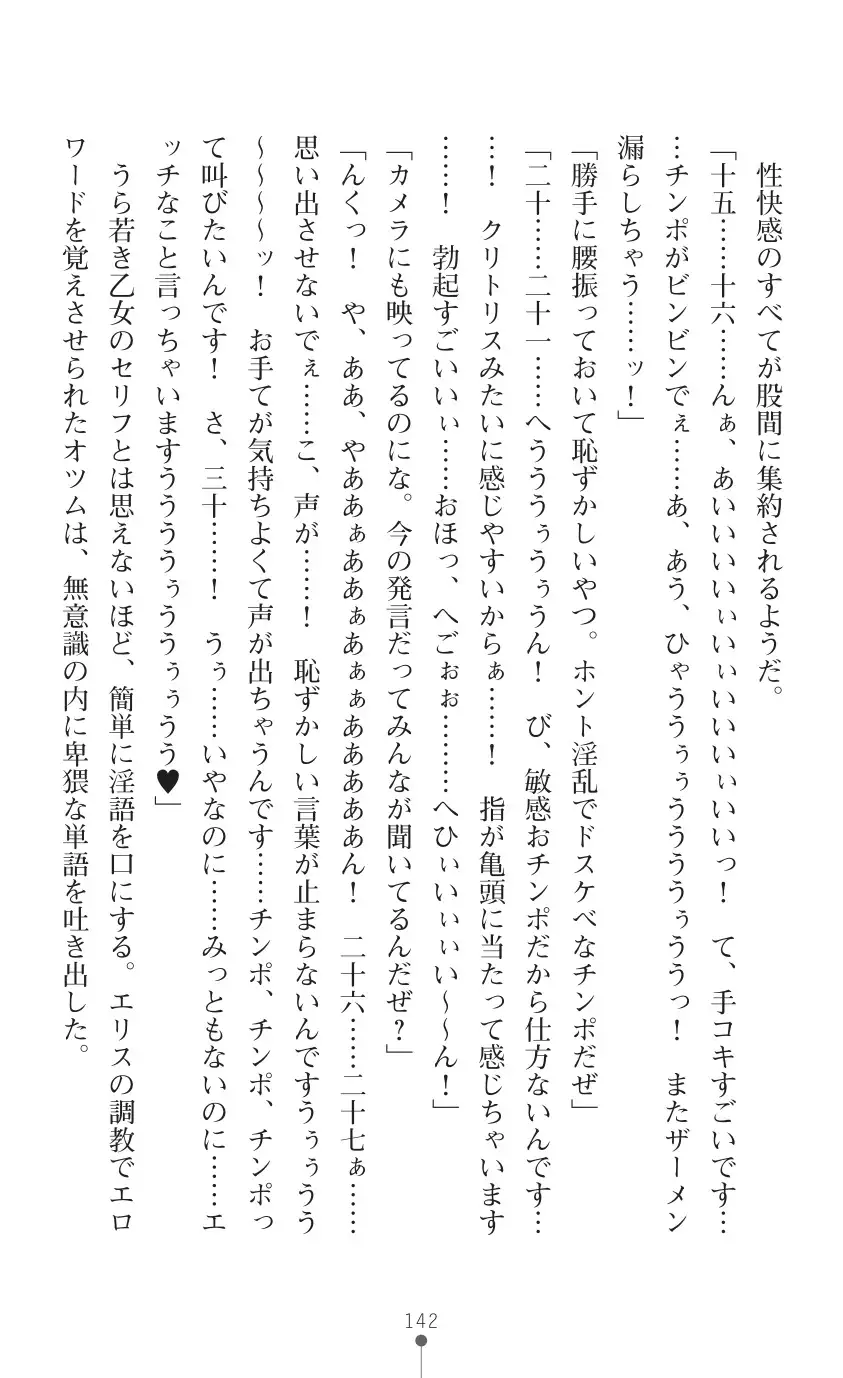 性快感のすべてが股間に集約されるようだ。
「十五……十六……んぁ、あいいいいぃいぃいいいぃいいっ！　て、手コキすごいです…
…チンポがビンビンでぇ……あ、あう、ひゃううぅぅうううぅううっ！　またザーメン
漏らしちゃう……ッ！」
「勝手に腰振っておいて恥ずかしいやつ。ホント淫乱でドスケベなチンポだぜ」
「二十……二十一……へうううぅうぅうん！　び、敏感おチンポだから仕方ないんです…
…！　クリトリスみたいに感じやすいからぁ……！　指が亀頭に当たって感じちゃいます
……！　勃起すごいいぃ……おほっ、へごぉぉ………へひぃいぃぃい～～ん！」
「カメラにも映ってるのにな。今の発言だってみんなが聞いてるんだぜ？」
「んくっ！　や、ああ、やああぁああぁあぁぁあああああん！　二十六……二十七ぁ……
思い出させないでぇ……こ、声が……！　恥ずかしい言葉が止まらないんですうぅぅうう
～～～～ッ！　お手てが気持ちよくて声が出ちゃうんです……チンポ、チンポ、チンポっ
て叫びたいんです！　さ、三十……！　うぅ……いやなのに……みっともないのに……エ
ッチなこと言っちゃいますうううううぅううぅぅうう♥」
うら若き乙女のセリフとは思えないほど、簡単に淫語を口にする。エリスの調教でエロ
ワードを覚えさせられたオツムは、無意識の内に卑猥な単語を吐き出した。
142